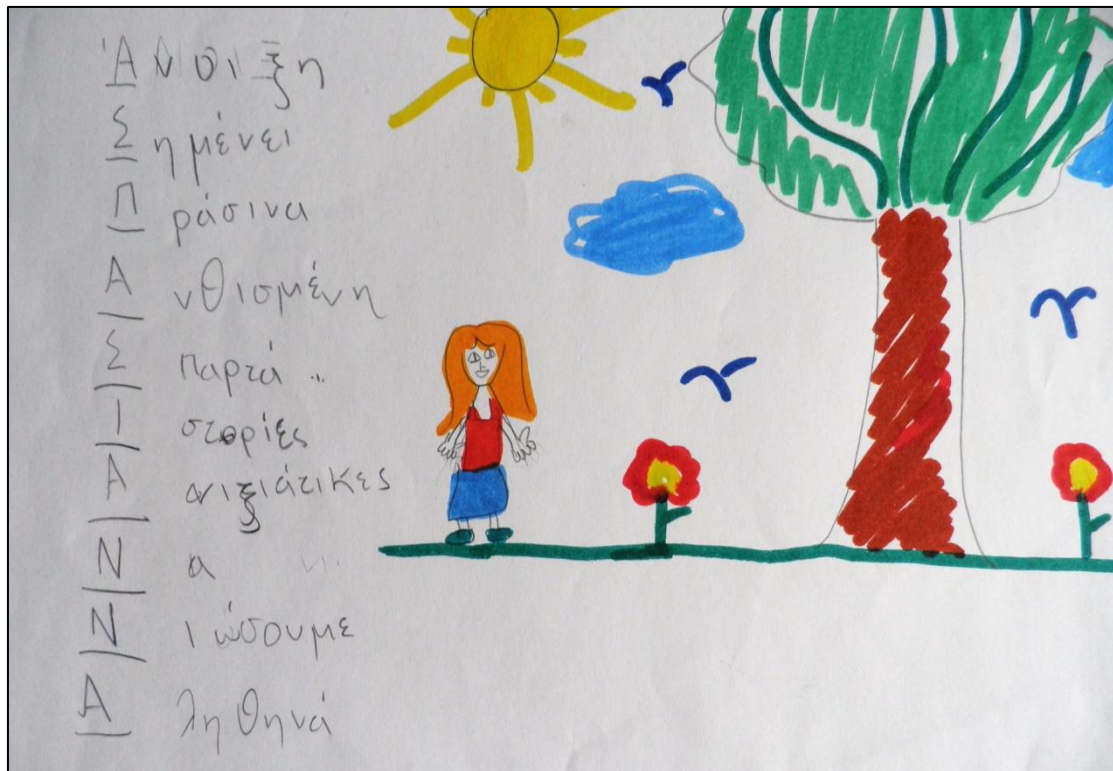 Άνοιξη
Σημένει
Πράσινα
Ανθισμένη
Σπαρτά ..
Ιστορίες
Ανιξιάτικες
Να ...
Νιώσουμε
Αληθινά